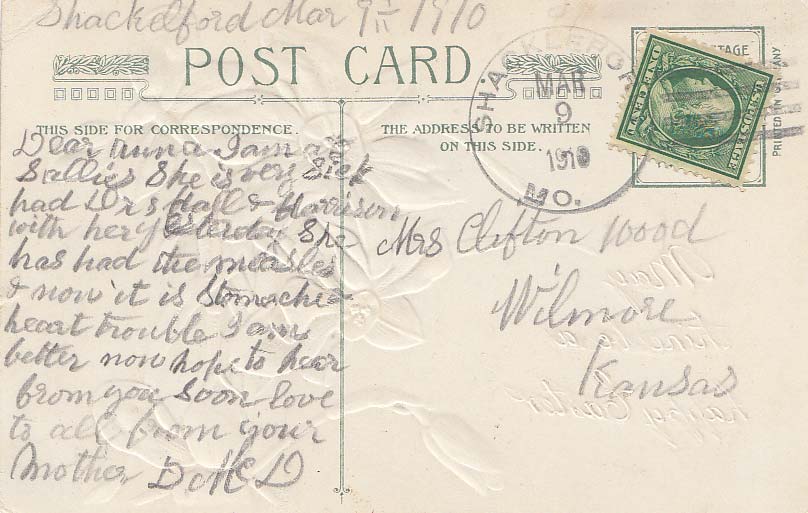 Shackelford Mar 9th 1910
POST CARD
THIS SIDE FOR CORRESPONDENCE.
THE ADDRESS TO BE WRITTEN
ON THIS SIDE.
SHACKLEFORD
MAR
9
1910
MO.
POSTAGE
PRINTED IN GERMANY
Dear I am at
Sallies She is very Sick
had Drs & Harrison
with her yesterday She
has had the measles
& now it is Stomache &
heart trouble I am
better now hope to hear
from you Soon love
to all from your
Mother
Mrs Clifton Wood
Wilmore
Kansas